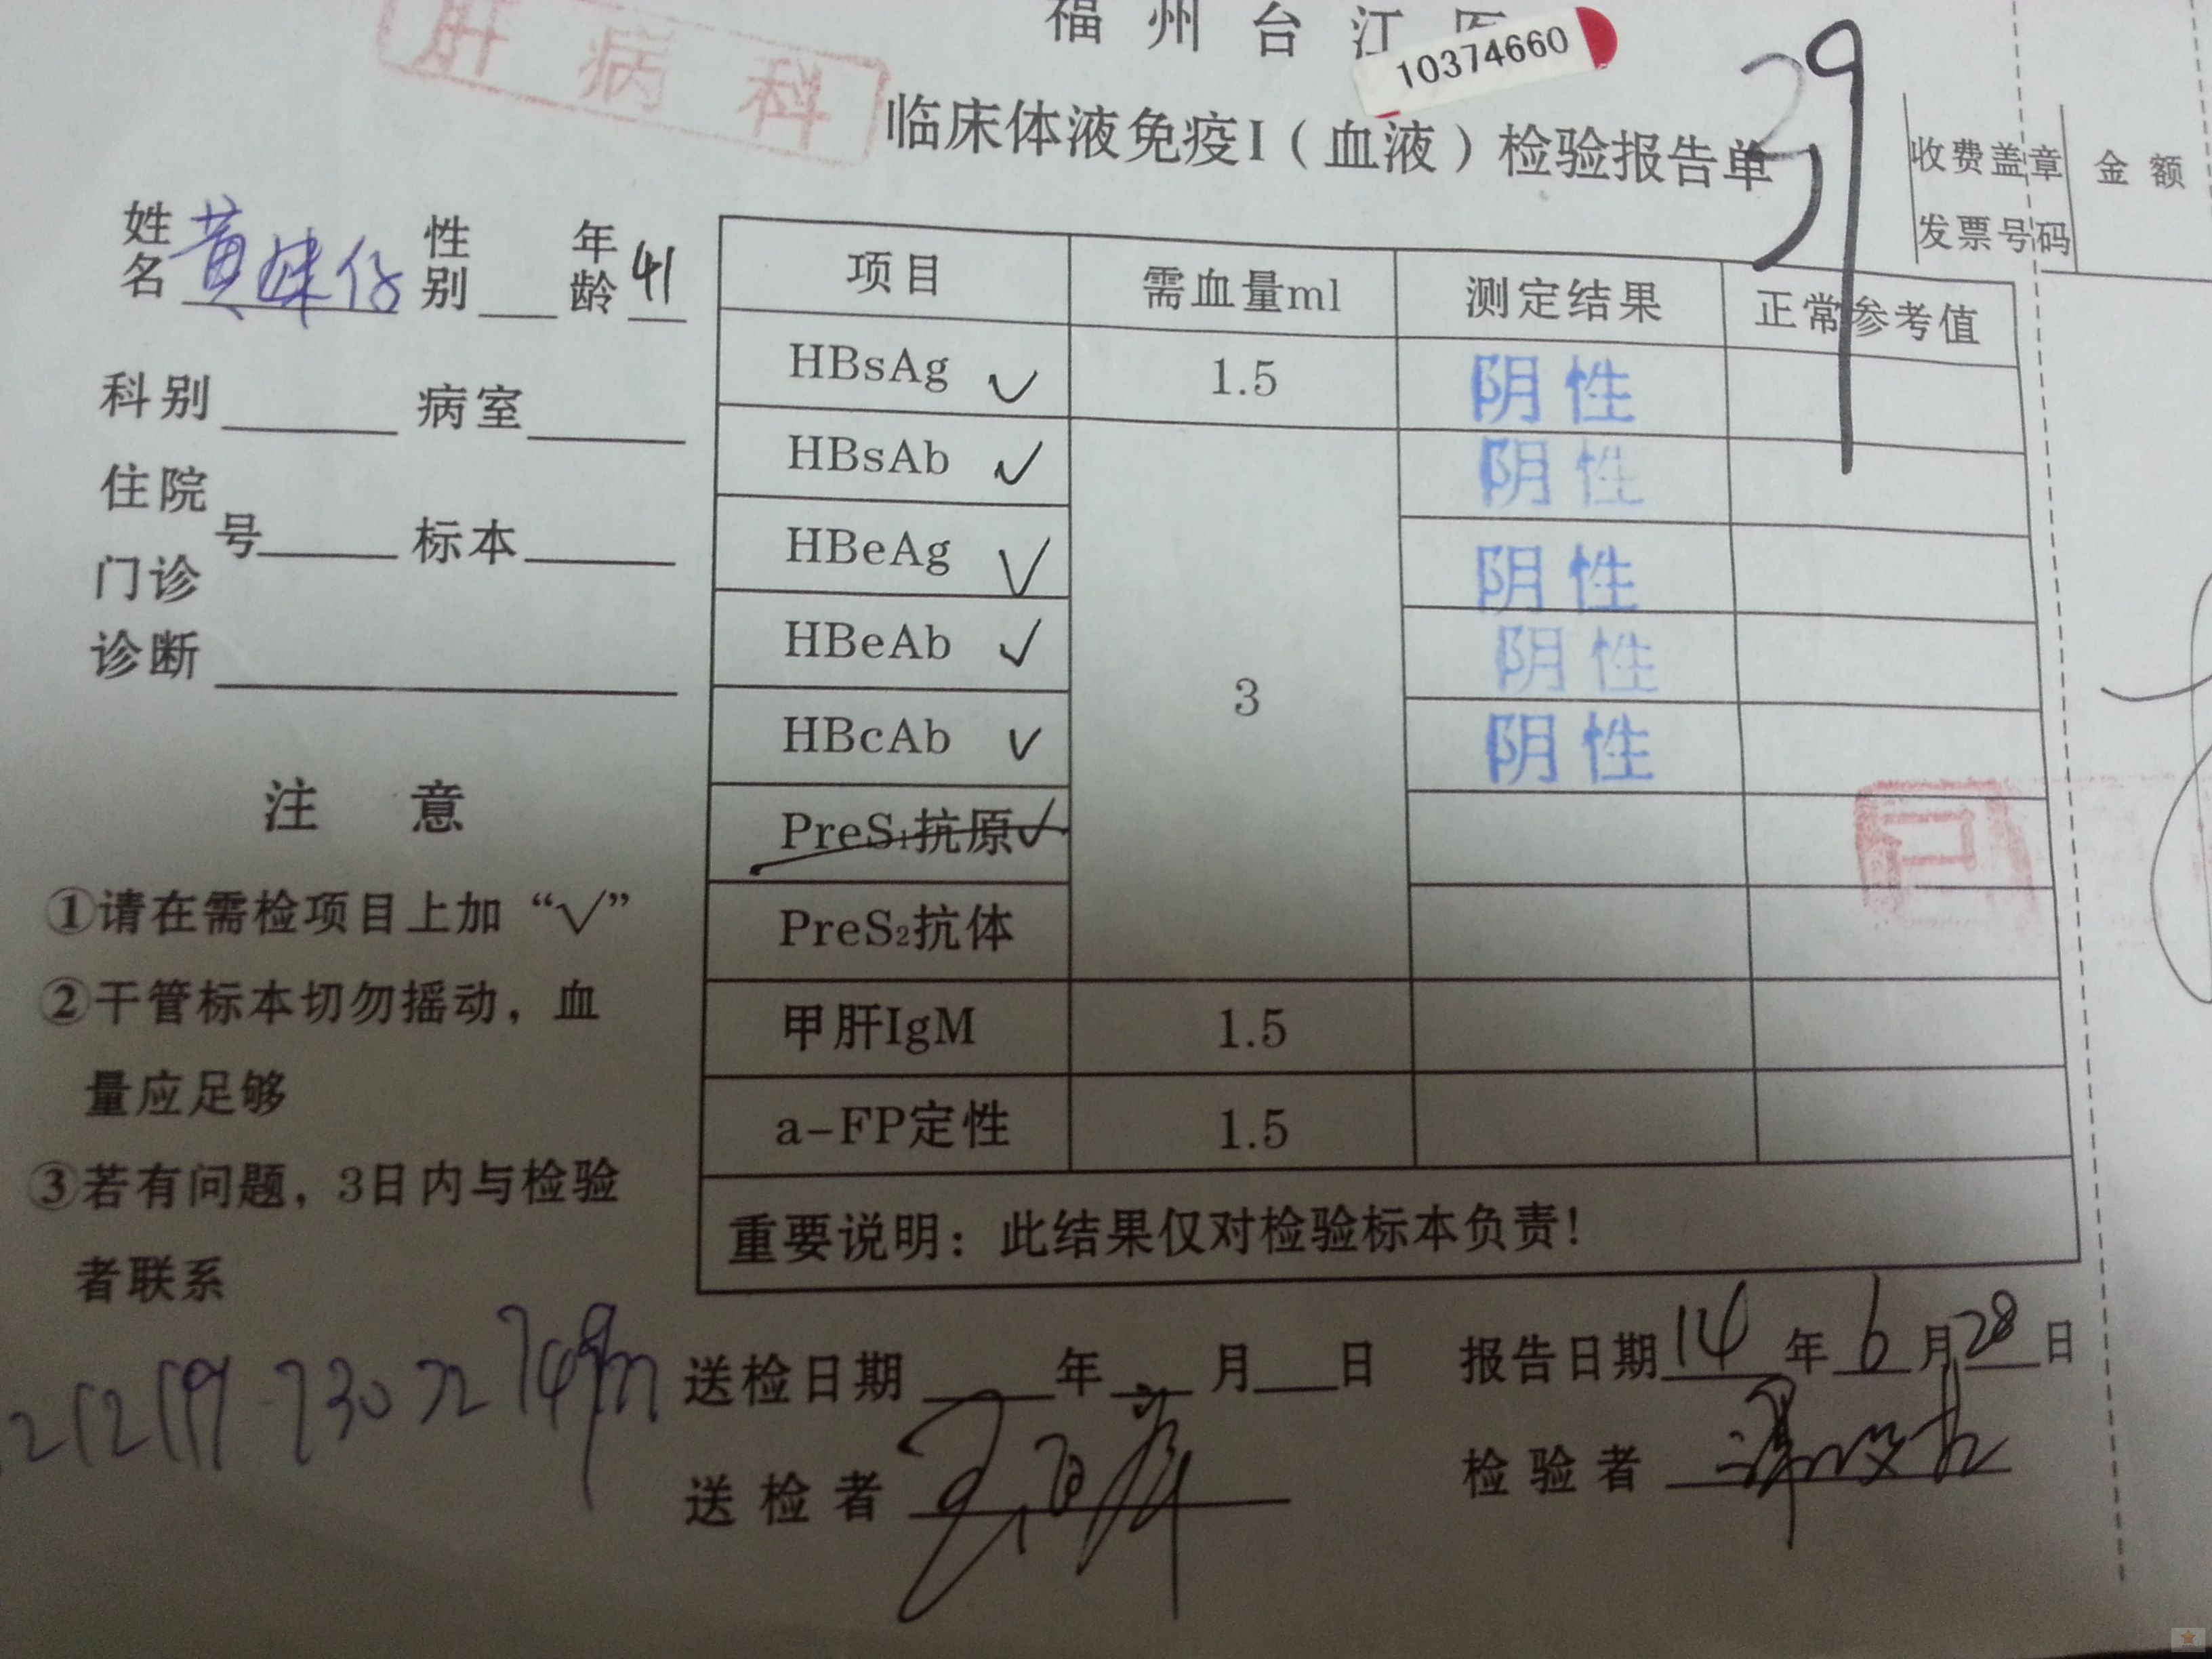 肝病科
福州台江医
10374660
39
临床体液免疫I（血液）检验报告单
收费盖章 金额
发票号码
姓名 黄妹仔 性别 年龄 41
科别 病室
住院
门诊 号 标本
诊断
项目 需血量ml 测定结果 正常参考值
HBsAg √ 1.5 阴性
HBsAb √ 阴性
HBeAg √ 阴性
HBeAb √ 3 阴性
HBcAb √ 阴性
PreS1抗原 √
PreS2抗体
甲肝IgM 1.5
a-FP定性 1.5
重要说明：此结果仅对检验标本负责！
注意
①请在需检项目上加“√”
②干管标本切勿摇动，血
量应足够
③若有问题，3日内与检验
者联系
送检日期 年 月 日 报告日期 14 年 6 月 28 日
送检者 检验者